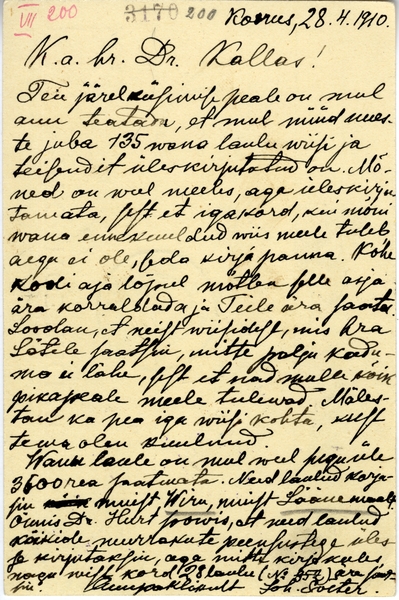 VII 200
3170 200
Korrus, 28.4.1910.
K. a. hr. Dr. Kallas!
Teie järelküsimise peale on mul
auu teatada, et mul nüüd mees-
te juba 135 wana laulu wiisi ja
teisendit üleskirjutatud on. Mõ-
ned on weel meeles, aga üleskirju-
tamata, sest et iga kord, kui mõni
wana ennekuuldud wiis meele tuleb
aega ei ole, seda kirja panna. Kohe
kooli aja lõpul mõtlen selle asja
ära korraldada ja Teile ära saata.
Loodan, et neist wiisidest, mis ära
Lätele saatsin, mitte palju kadu-
ma ei lähe, sest et nad mulle kõik
pikapeale meele tulewad. Mäles-
tan ka pea iga wiisi kohta, kust
teda olen kuulnud
Wanu laule on mul weel pigu üle
3600 rea saatmata. Need laulud korja-
sin muist Wiru, muist Läänemaalt.
Õnnis Dr. Hurt soowis, et need laulud
kõikide murrakute peensustega üles
se kirjutaksin, aga mitte kirjakeeles,
nagu wist kord 28 laulu (№ 352) ära saat-
sin. Auupaklikult Joh. Ester.